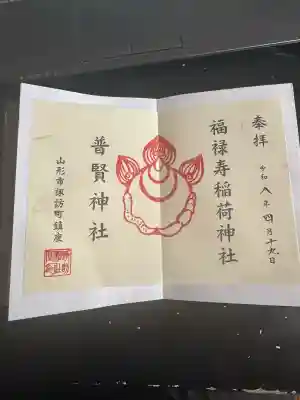 奉拝
令和八年四月十九日
福禄寿稲荷神社
普賢神社
山形市諏訪町鎮座